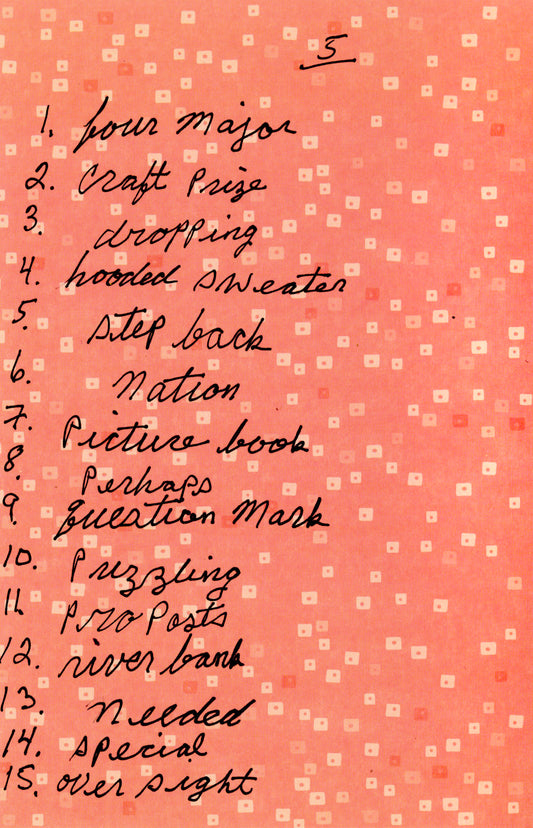 5
1. four major
2. Craft Prize
3. dropping
4. hooded sweater
5. step back
6. Nation
7. Picture book
8. Perhaps
9. question Mark
10. Puzzling
11. Pro Posts
12. river bank
13. needed
14. special
15. over sight